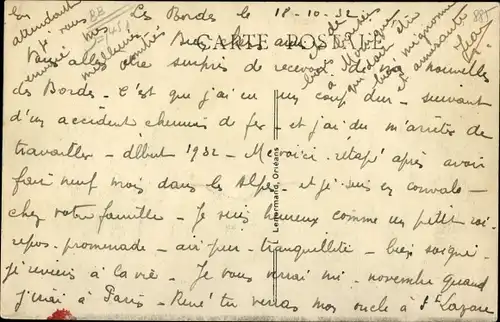 Les Bordes le 18-10-32
CARTE POSTALE
Bien chers amis
Vous allez être surpris de recevoir des nouvelles
des Bordes - C'est que j'ai eu un coup dur - suivant
d'un accident chemin de fer - et j'ai du m'arrêter de
travailler - début 1932 - Me voici retapé après avoir
fait neuf mois dans les Alpes - et je suis en convale -
chez votre famille - Je suis heureux comme un petit roi -
repos - promenade - air pur - tranquillité - bien soigné -
je reviens à la vie - Je vous verrai mi - novembre quand
j'irai à Paris - René tu verras mon oncle à St Lazare
En
attendant
je vous
envoie mes
meilleures
amitiés
et de
bons baisers
à Monique
qui doit être
bien mignonne
et amusante
Jean
Lenormand, Orléans